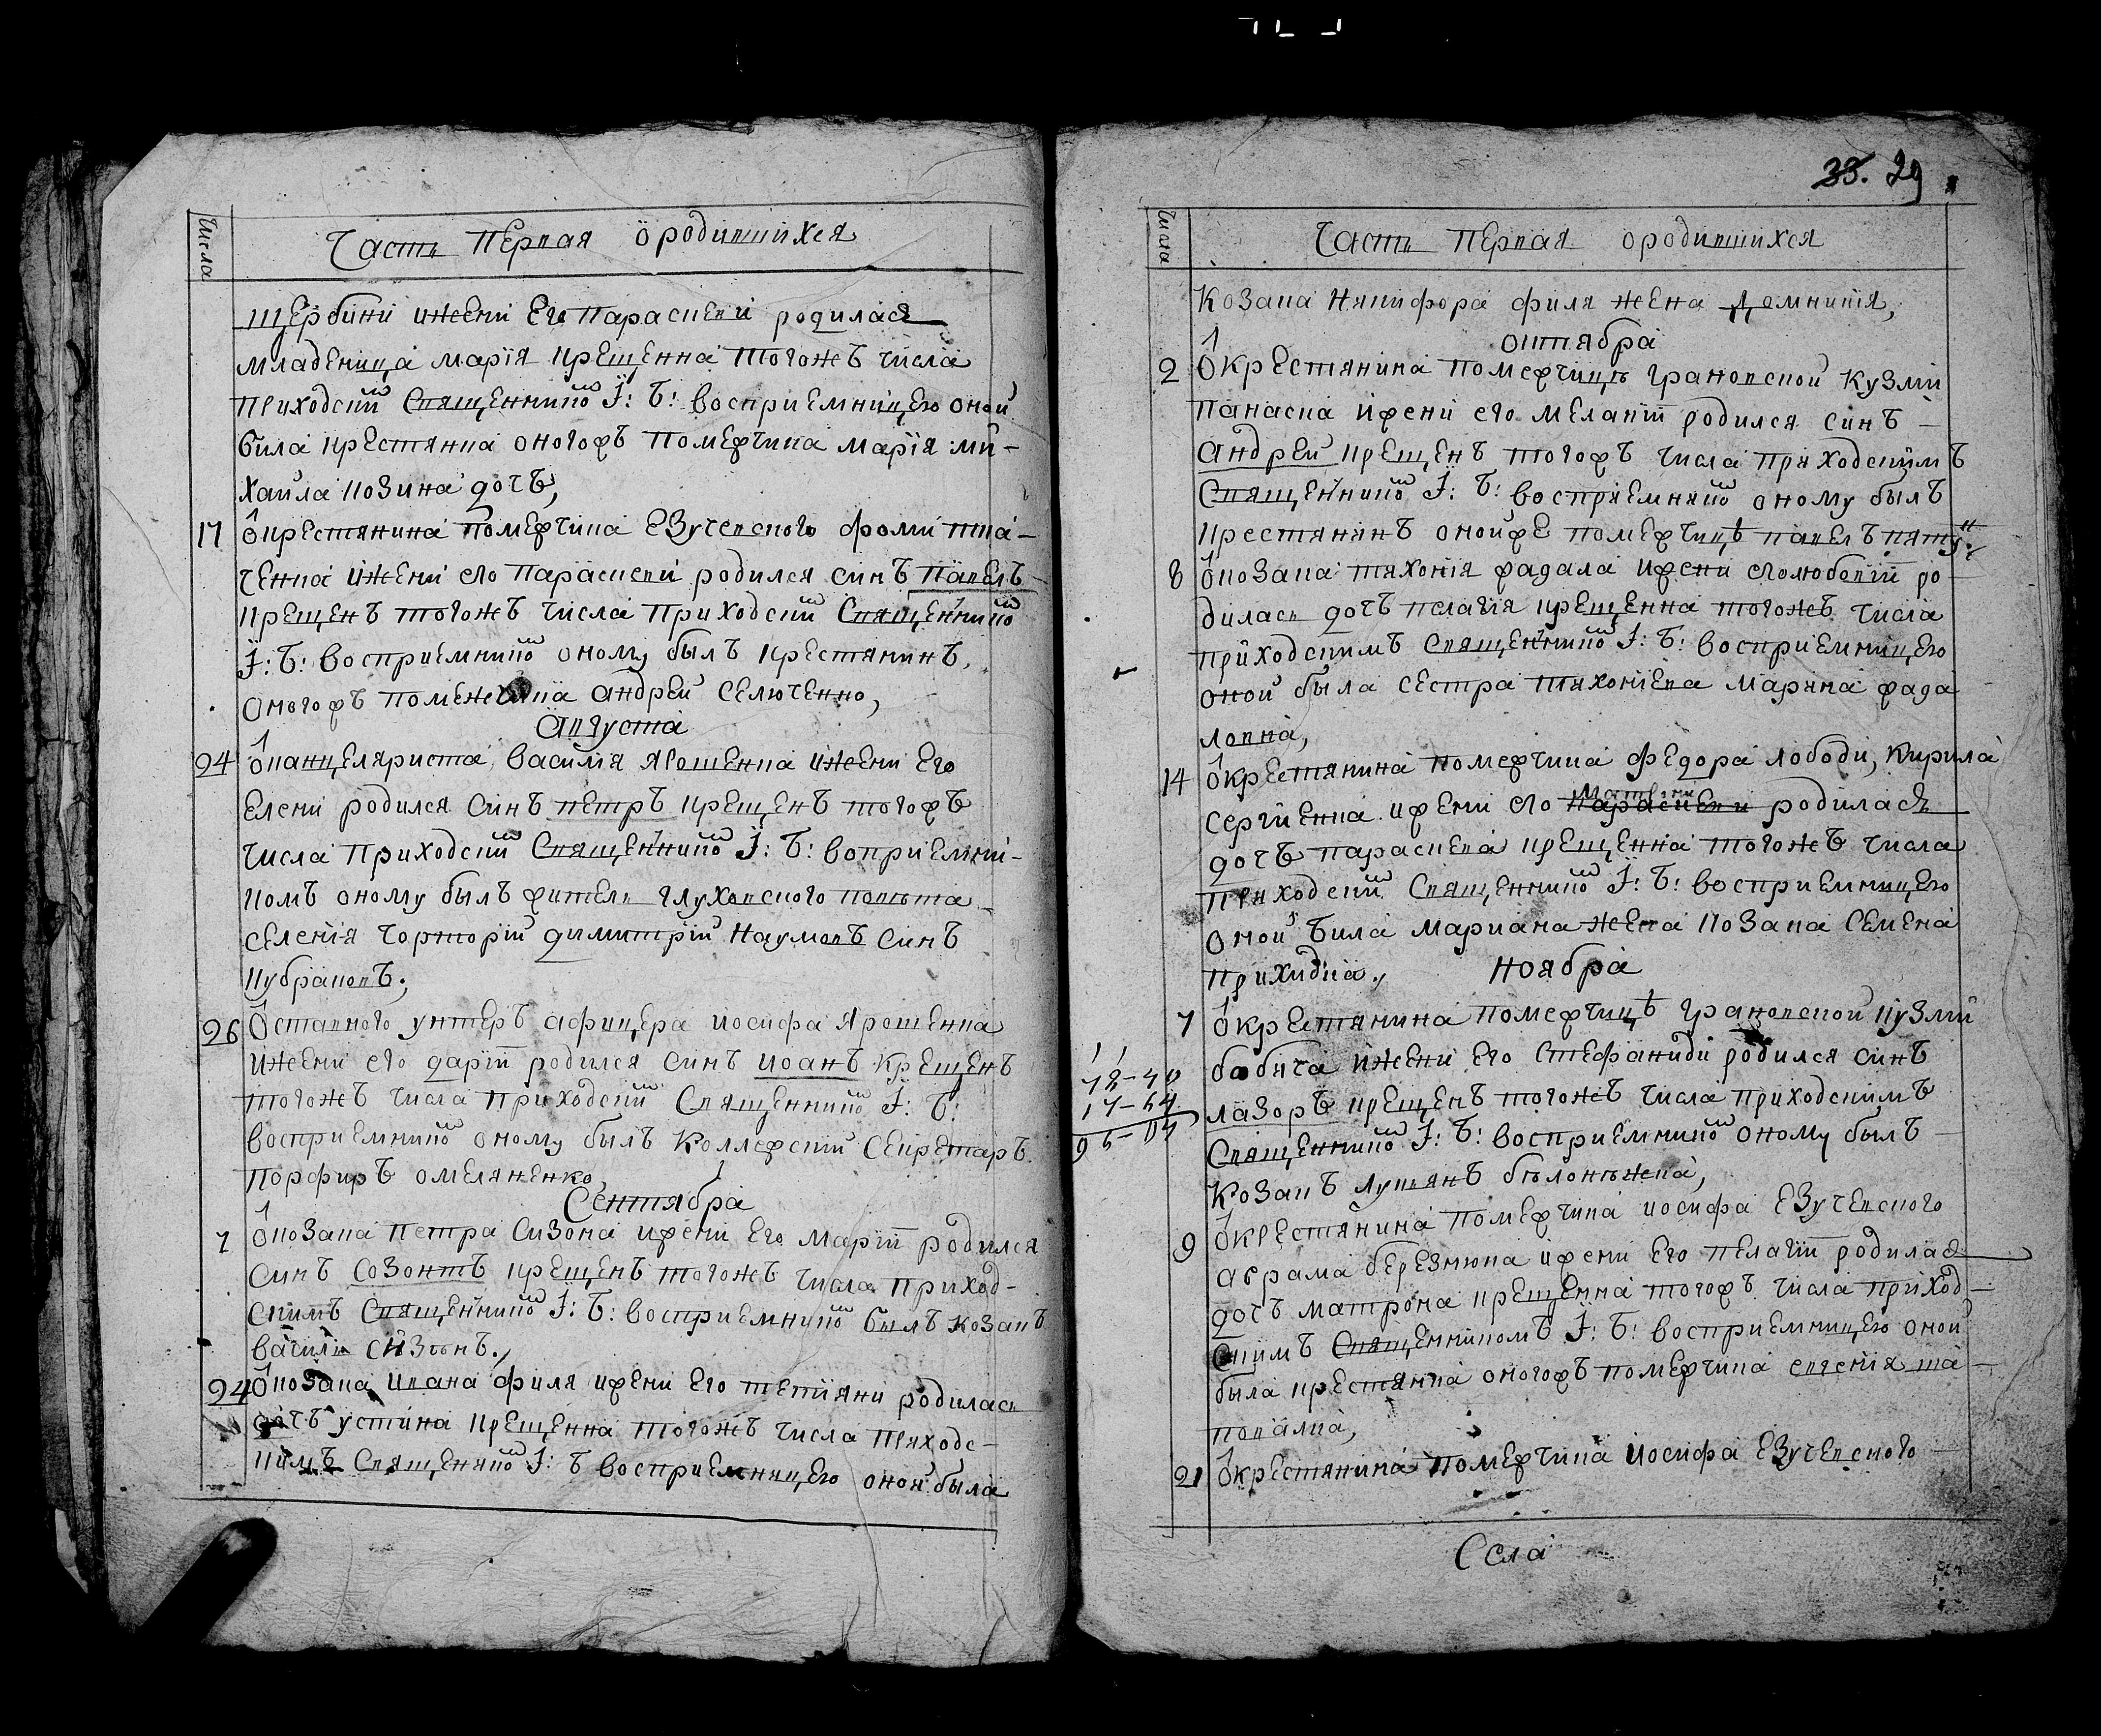 Числа
Часть Первая о родившихся
щербини и жени его Параскеви родилася
младеница мария крещенна тогожъ числа
приходскім Священником І: Б: восприемницею оной
била крестянка оногожъ помещика Мария ми-
хаила козина дочъ,
17 У крестянина помещика Езучевского Фоми тка-
ченка и жени его Параскеви родился синъ Павелъ
крещенъ тогожъ числа приходскім Священником
І: Б: восприемником оному былъ крестянинъ
оногожъ помещика андрей Селюченко,
Августа
24 У канцеляриста Василия Ярошенка и жени его
Елени родился синъ петръ крещенъ тогожъ
числа приходскім Священником І: Б: воприемни-
комъ оному былъ житель глуховского повѣта
селения Чорторій димитрий Наумовъ синъ
Кубраковъ,
26 Оставного унтеръ афицера иосифа Ярошенка
и жени его дарій родился синъ иоанъ крещенъ
тогожъ числа приходскім Священником І: Б:
восприемником оному былъ Коллежскій Секретаръ
Порфиръ омеляненко,
Сентября
7 У козака петра Сизона и жени его марій родился
синъ Созонтъ крещенъ тогожъ числа приход-
скимъ Священником І: Б: восприемником былъ козакъ
василий Сизонъ,
24 У козака ивана филя и жени его тетияни родилась
дочъ устина крещенна тогожъ числа приходс-
кимъ Священником І: Б восприемницею оной была
33. 29
Числа
Часть Первая о родившихся
козака Никифора филя жена Домникия,
октября
2 У крестянина помещицѣ грановской Кузми
Панаска и жени его меланій родился синъ
андрей крещенъ тогожъ числа приходскимъ
Священником І: Б: восприемником оному былъ
крестянинъ онойже помещицѣ павелъ
8 У козака тихония жадала и жени его любовій ро-
дилась дочъ пелагия крещенна тогожъ числа
приходскимъ Священником І: Б: восприемницею
оной была сестра тихониева Марина жада
ловна,
14 У крестянина помещика Федора Лободи, Кирила
сергиенка и жени его Параскеви Матвени родилася
дочъ параскева крещенна тогожъ числа
приходскім Священником І: Б: восприемницею
оной била мариана жена козака Семена
приходка,
ноября
7 У крестянина помещицѣ грановской кузми
бабича и жени его Стефаниди родился синъ
лазоръ крещенъ тогожъ числа приходскимъ
Священником І: Б: восприемником оному былъ
козакъ лукьянъ
9 У крестянина помещика иосифа Езучевского
аврама березнюка и жени его пелагій родилася
дочъ матрона крещенна тогожъ числа приход-
скимъ Священникомъ І: Б: восприемницею оной
была крестянка оногожъ помещика
21 У крестянина помещика иосифа Езучевского
Села